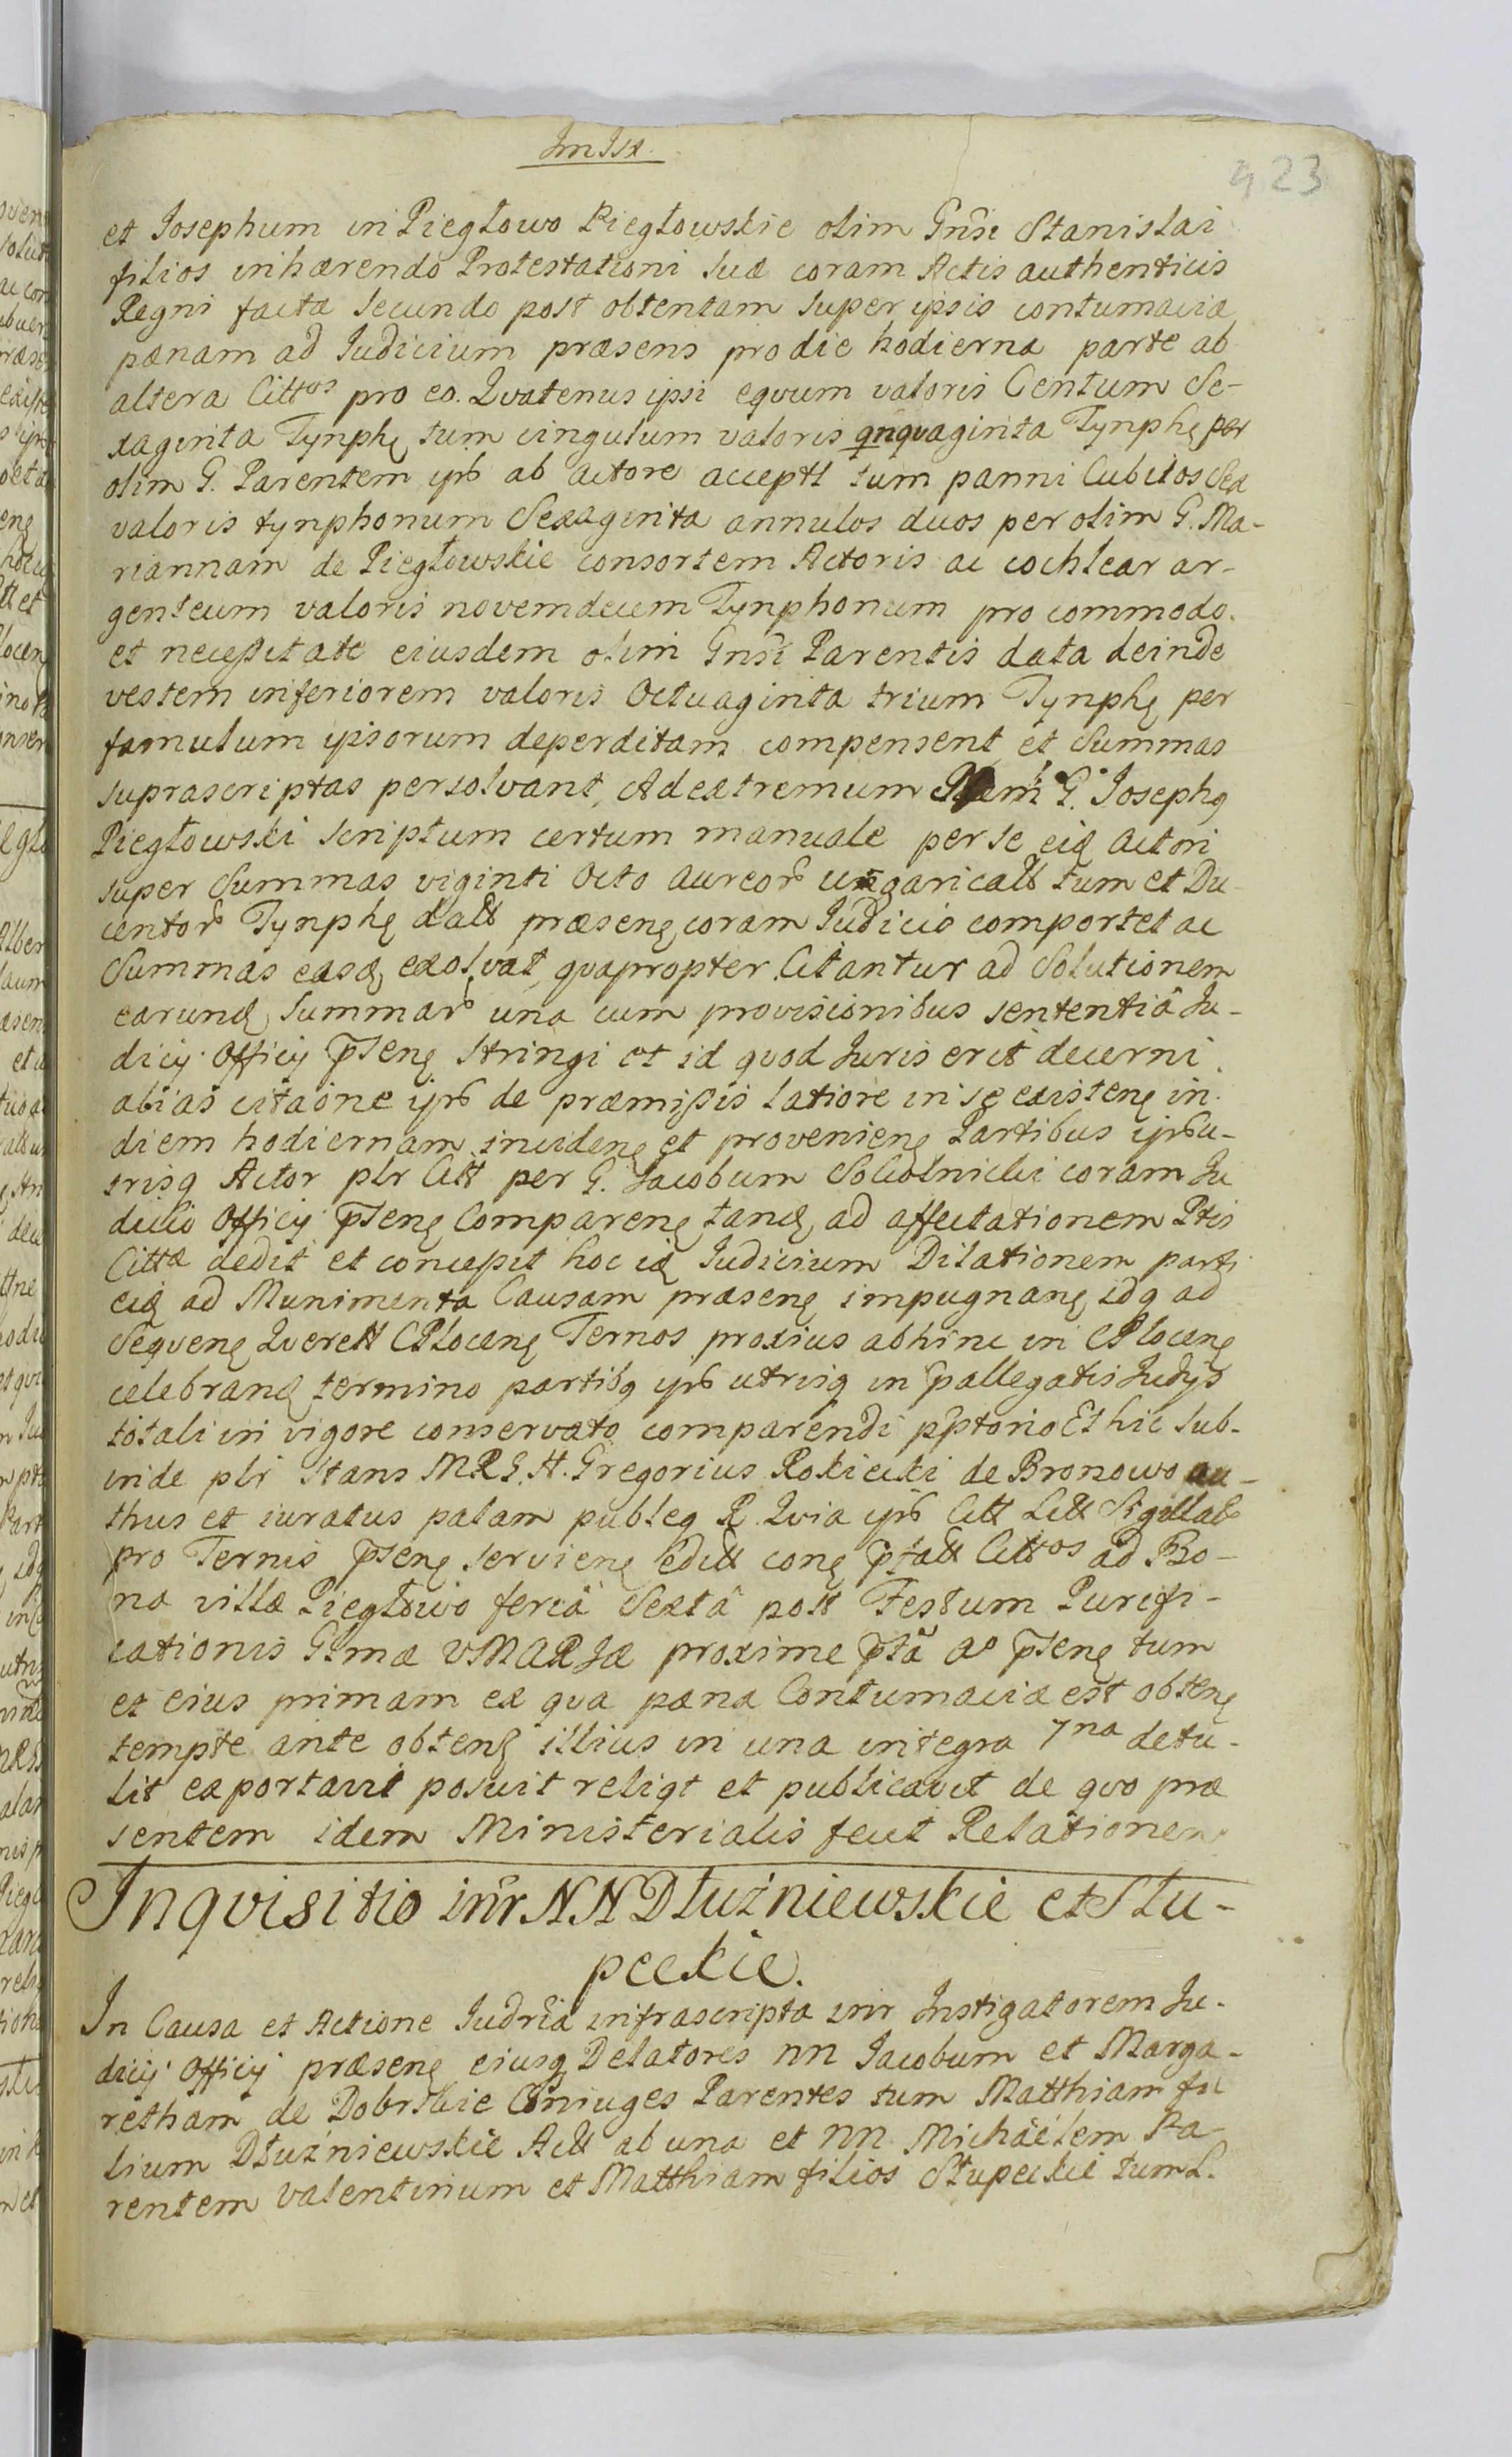 423
et Josephum in Piegłowo Piegłowskie olim Gnsi Stanislai
filios inhærendo Protestationi suæ coram Actis authenticis
Regni factæ secundo post obtentam super ipsis contumaciæ
pænam ad Judicium præsens pro die hodierna parte ab
altera Cittos pro eo. Qvatenus ipsi eqvum valoris Centum Se-
xaginta Tynphę tum cingulum valoris qnqvaginta Tynphę per
olim G. Parentem ipsũ ab actore acceptt tum panni Cubitos Sex
valoris tynphonum Sexaginta annulos duos per olim G. Ma-
riannam de Piegłowskie consortem Actoris ac cochlear ar-
genteum valoris novemdecem Tynphonum pro commodo
et neceßitate eiusdem olim Gnsi Parentis data deinde
vestem inferiorem valoris Octuaginta trium Tynphę per
famulum ipsorum deperditam compensent et Summas
suprascriptas persolvant, Ad extremum G. Josephq
Piegłowski scriptum certum manuale per se eid Actori
super Summas viginti Octo aureorũ ungaricalt tum et Du-
centorũ Tynphę datt præsenę coram Judicio comportet ac
Summas easd exolvat, qvapropter Citantur ad Solutionem
earund Summarũ una cum provisionibus sententiâ Ju-
dicij Officij pñsenę stringi et id qvod Juris erit decerni
alias citaõne ipsũ de præmißis latiore in se existenę in
diem hodiernam incidenę et provenienę Partibus ipsũ u-
trisq Actor plr Citt per G. Jacobum Sokolnicki coram Ju
dicio Officij pñsenę Comparenę tand ad affectationem Ptis
Cittæ dedit et conceßit hoc id Judicium Dilationem parti
eid ad Munimenta Causam præsenę impugnanę idq ad
Seqvenę Qverell CPlocenę Ternos proxius abhinc in CPlocenę
celebrand termino partibq ipsũ utrisq in pallegatis Judijs
totali in vigore conservato comparendi pptorio Et hic sub-
inde plr stans MRG. H. Gregorius Rokicki de Bronowo au-
thus et iuratus palam publeq R. Qvia ipsũ Citt Litt Sigillatũ
pro Ternis pñsenę servienę edict conę pñfatt Cittos ad Bo-
na villæ Piegłowo feriâ Sextâ post Festum Purifi-
cationis Gsmæ VMARJæ proxime pñtâ Ao pñsenę tum
et eius primam ex qva pæna Contumaciæ est obtenę
tempte ante obtenę illius in una integra 7na detu-
lit exportavit posuit religt et publicavit de qvo præ
sentem idem Ministerialis fecit Relationem
Inqvisitio intr NN Dłuźniewskie et Słu-
peckie.
In Causa et Actione Judriâ infrascripta intr Instigatorem Ju-
dicij Officij præsenę eiusq Delatores NN Jacobum et Marga-
retham de Dobrskie Coniuges Parentes tum Matthiam fi
lium Dłuźniewskie Actt ab una et NN Michäelem Pa-
rentem Valentinum et Matthiam filios Słupeckie tum L.